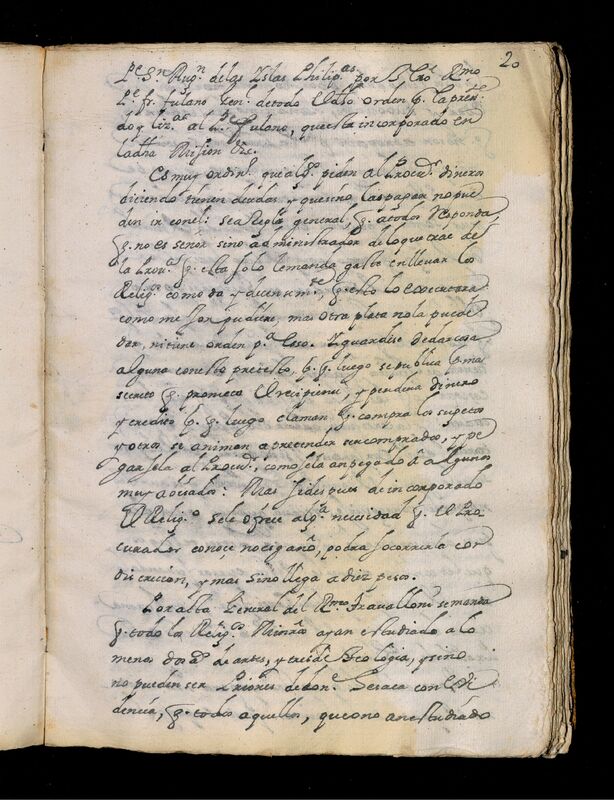 20
Pe. Sn. Aug.n de las Yslas Philip.as por
Pe. fr. fulano Gen.l de todo el Orden
do y liz.as al P.e fulano, que esta incorporado en
la dha Mision &c.
Es muy ordin.o que alg.s piden al Procu.r dinero
diciendo tienen deudas, y que sino las pagan no pue
den ir con el: sea Regla general, q. a todos Responda,
q. no es señor sino administrador de lo que trae de
la Prou.a q. esta solo le manda gaste en llevar los
Relig.s como da y decentem.te, q. esto lo executara
como mejor pudiere, mas otra plata no la puede
dar, ni tiene orden p.a eso. Y guardese de dar cosa
alguna con este pretesto, p. q. luego se publica p. mas
secreto q. prometa el recipiente, y perdera dinero
y credito p. q. luego claman q. compra los sugetos
y otros se animan a pretender ser comprados, y pe
garsela al Procu.r, como sela an pegado a algunos
muy abisados. Mas si despues de incorporado
el Relig.o se le ofrece alg.a necesidad q. el Pro
curador conoce no es gaño, podra socorrerla con
discrecion, y mas si no llega a diez pesos.
Por alta General del R.mo Travalloni se manda
q. todos los Relig.os Mision.s ayan estudiado a lo
menos dos a.s de artes, y tres de Teologia, y sino
no pueden ser Priores de don.e se saca con evi
dencia, q. todos aquellos, que no an estudiado